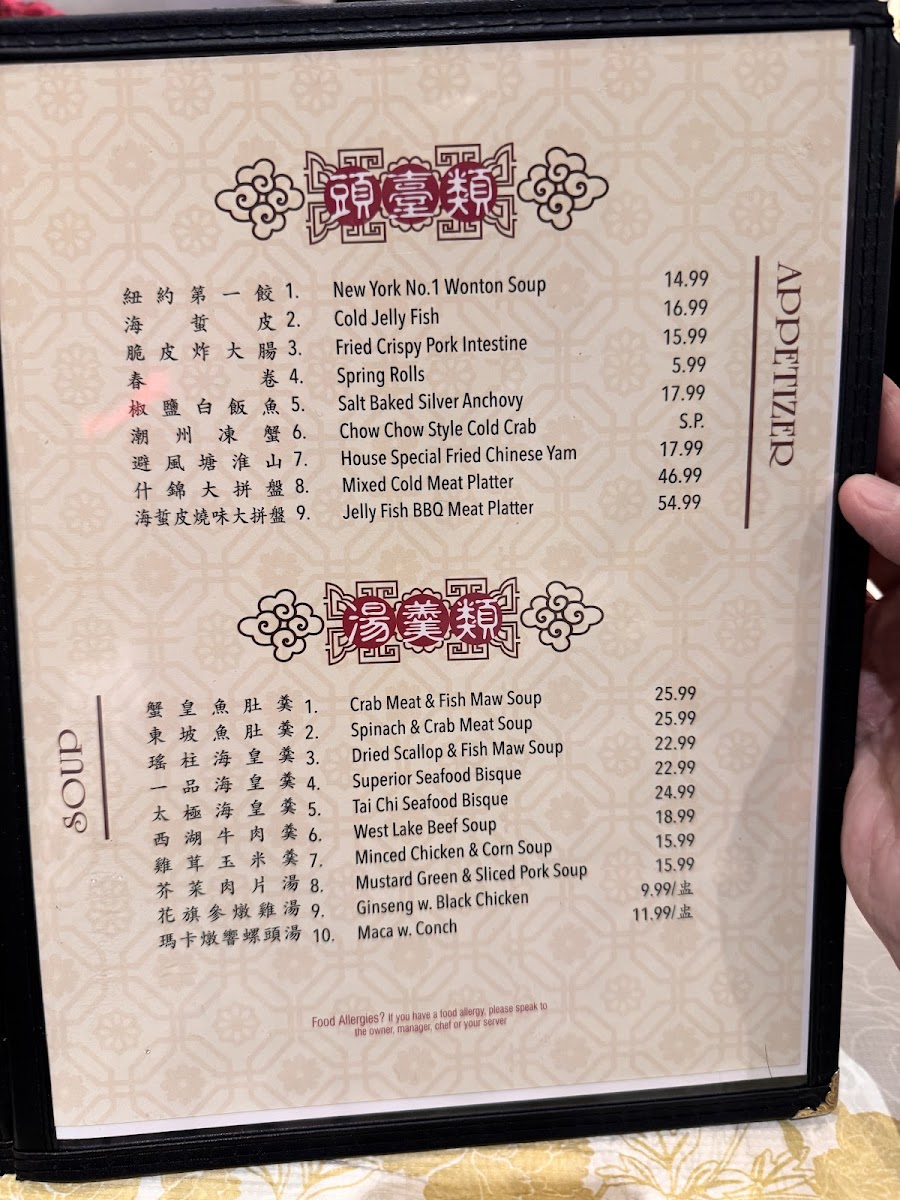 頭臺類
APPETIZER
紐約第一餃 1. New York No.1 Wonton Soup 14.99
海蜇皮 2. Cold Jelly Fish 16.99
脆皮炸大腸 3. Fried Crispy Pork Intestine 15.99
春卷 4. Spring Rolls 5.99
椒鹽白飯魚 5. Salt Baked Silver Anchovy 17.99
潮州凍蟹 6. Chow Chow Style Cold Crab S.P.
避風塘淮山 7. House Special Fried Chinese Yam 17.99
什錦大拼盤 8. Mixed Cold Meat Platter 46.99
海蜇皮燒味大拼盤 9. Jelly Fish BBQ Meat Platter 54.99
湯羹類
SOUP
蟹皇魚肚羹 1. Crab Meat & Fish Maw Soup 25.99
東坡魚肚羹 2. Spinach & Crab Meat Soup 25.99
瑤柱海皇羹 3. Dried Scallop & Fish Maw Soup 22.99
一品海皇羹 4. Superior Seafood Bisque 22.99
太極海皇羹 5. Tai Chi Seafood Bisque 24.99
西湖牛肉羹 6. West Lake Beef Soup 18.99
雞茸玉米羹 7. Minced Chicken & Corn Soup 15.99
芥菜肉片湯 8. Mustard Green & Sliced Pork Soup 15.99
花旗參燉雞湯 9. Ginseng w. Black Chicken 9.99/盅
瑪卡燉響螺頭湯 10. Maca w. Conch 11.99/盅
Food Allergies? If you have a food allergy, please speak to
the owner, manager, chef or your server